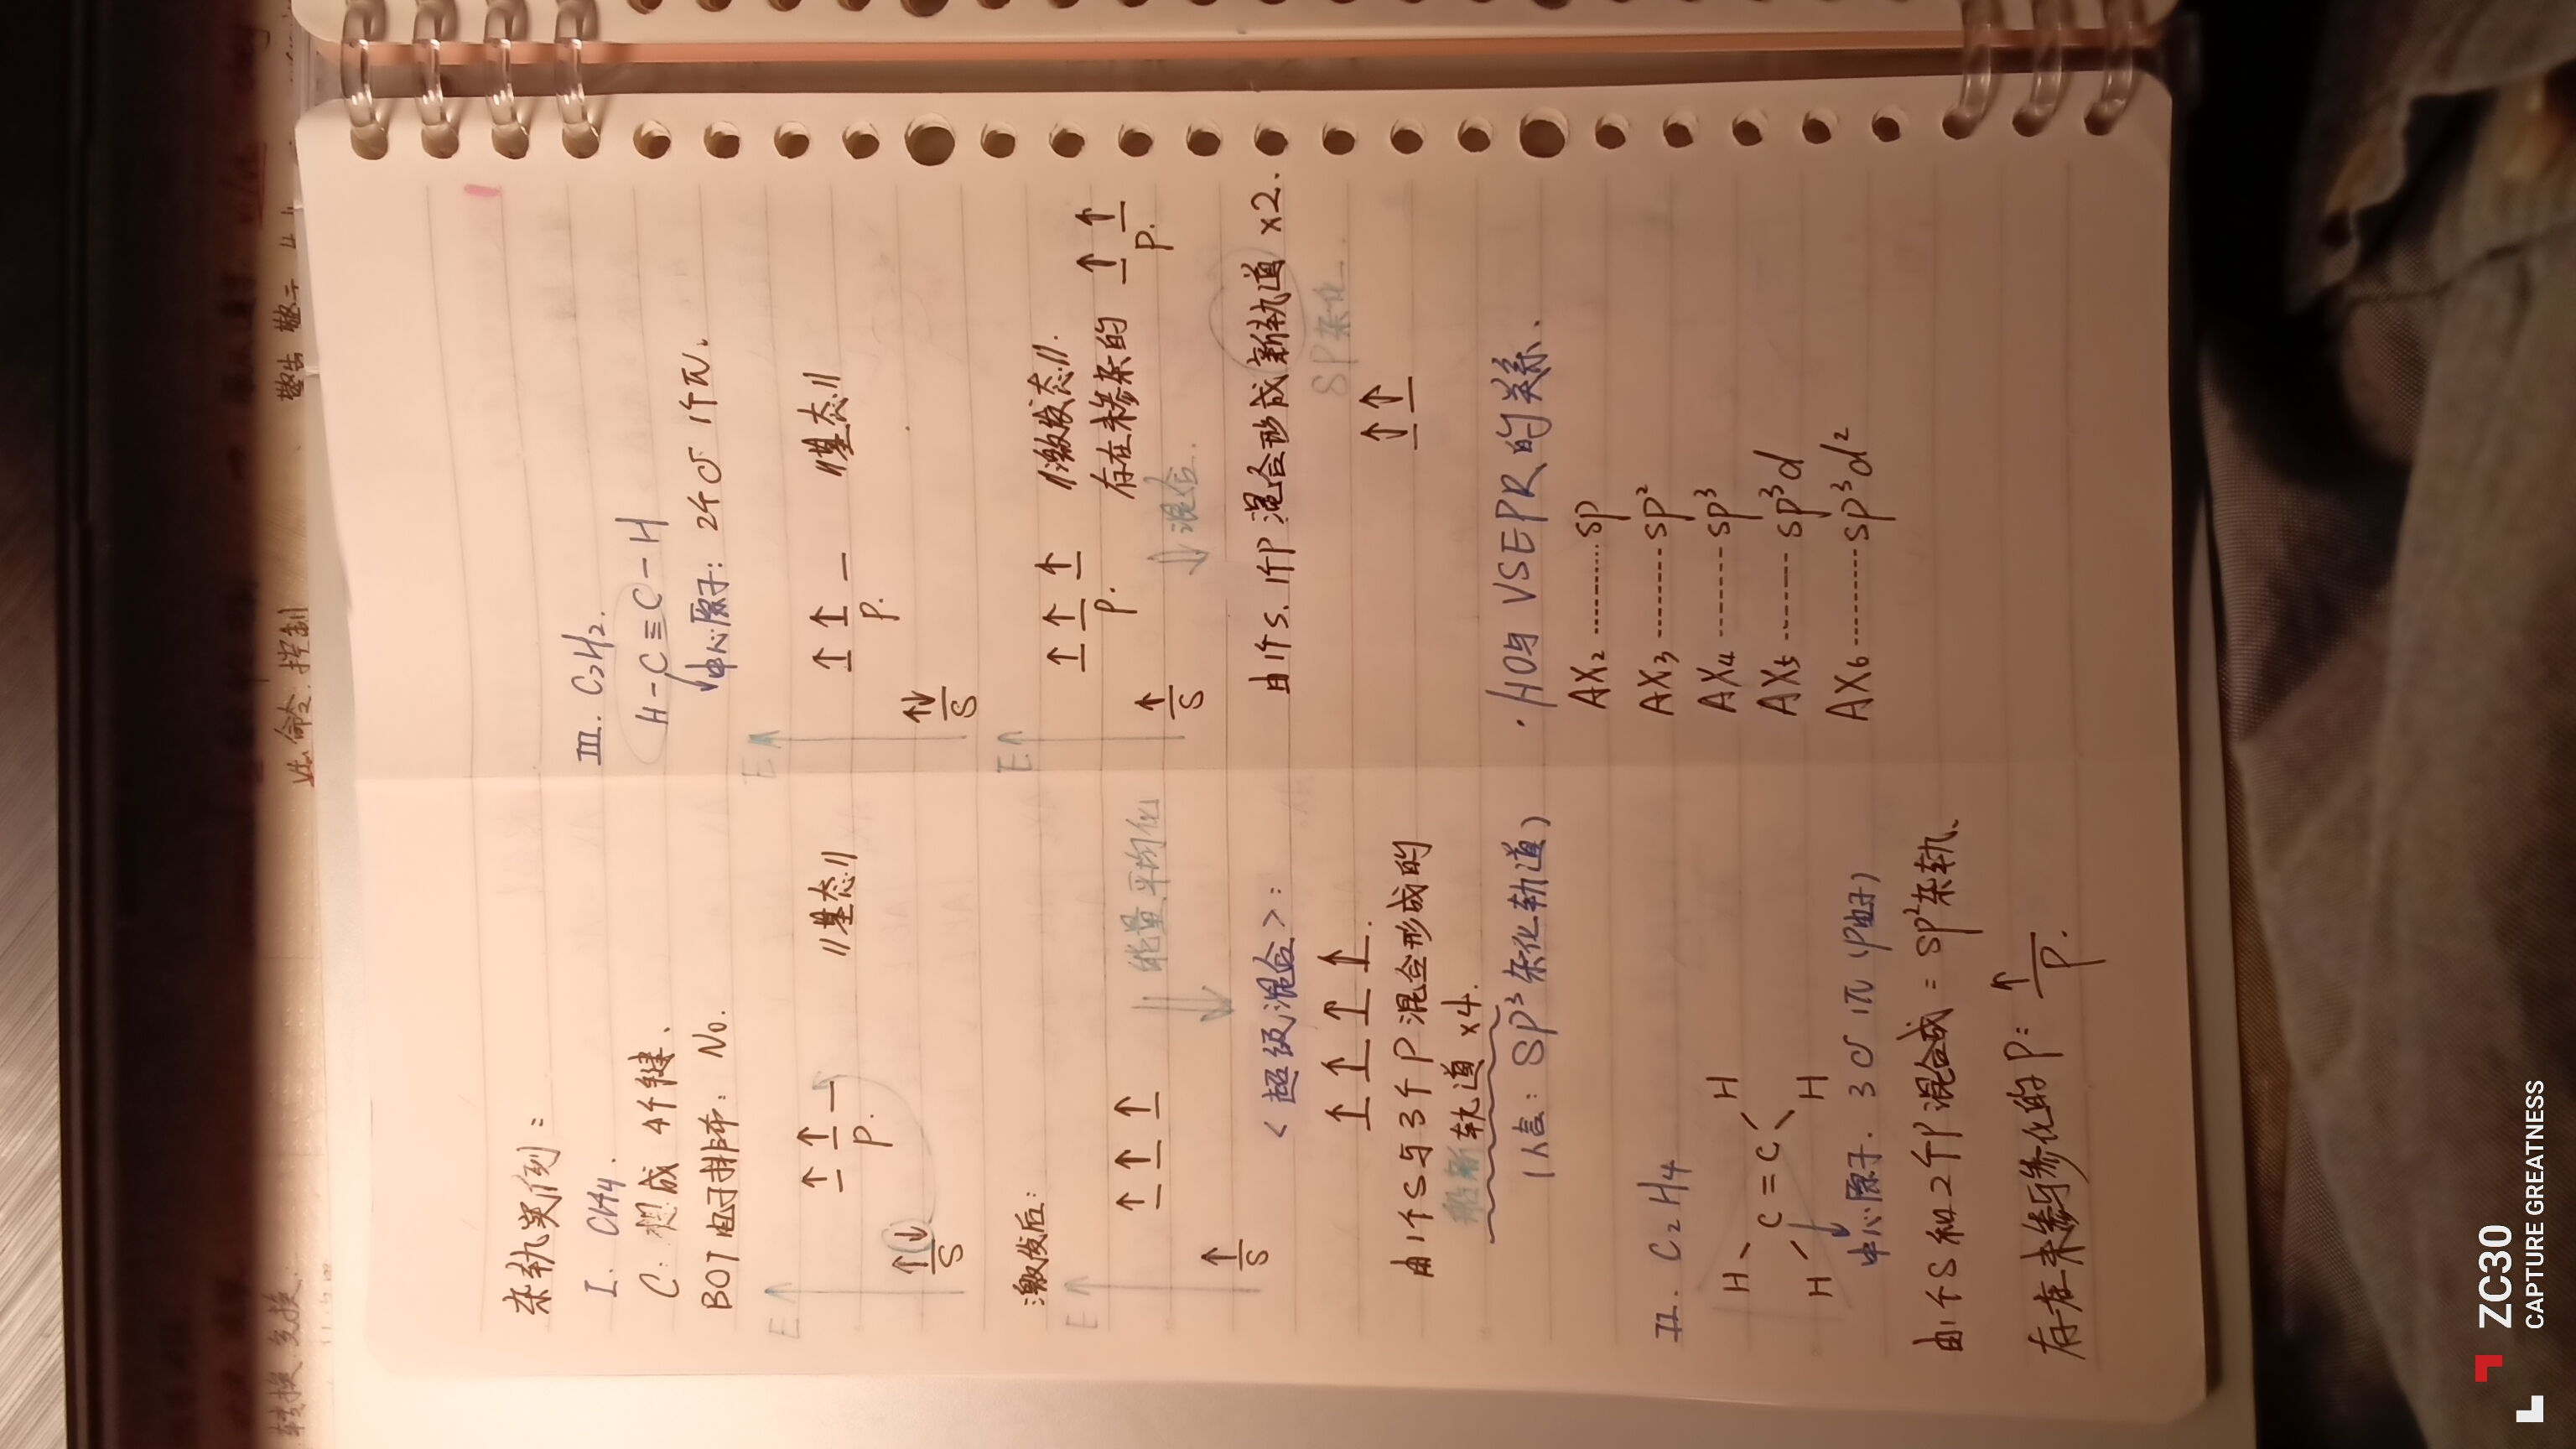 杂轨实例：
I. CH4.
C: 想成 4个键、
BOT 电子排布：No.
E
↑ ↑ _
P.
"基态"
↑↓
S
激发后：
E
↑ ↑ ↑
↑
S
能量平均化
<超级混合>：
↑ ↑ ↑ ↑.
由1个S与3个P混合形成的
轨道 x4.
(人言：SP³杂化轨道)
II. C2H4
H H
C=C
H H
中心原子. 3σ 1π
由1个S和2个P混合成=SP²杂轨、
存在未参杂化的P: ↑
P.
III. C2H2.
H-C≡C-H
中心原子：2个σ 1个π.
E
↑ ↑ _
P.
"基态"
↑↓
S
E
↑ ↑ ↑
P.
"激发态".
存在未参杂的 ↑ ↑
P.
↑
S
混合.
由1个S. 1个P混合形成新轨道 x2.
SP杂化.
↑ ↑
·HO与VSEPR的关系、
AX2 ---------- SP
AX3 --------- SP²
AX4 -------- SP³
AX5 ------- SP³d
AX6 --------- SP³d²
转换.交换.
V1. 命令.控制
警告 警示
ZC30
CAPTURE GREATNESS